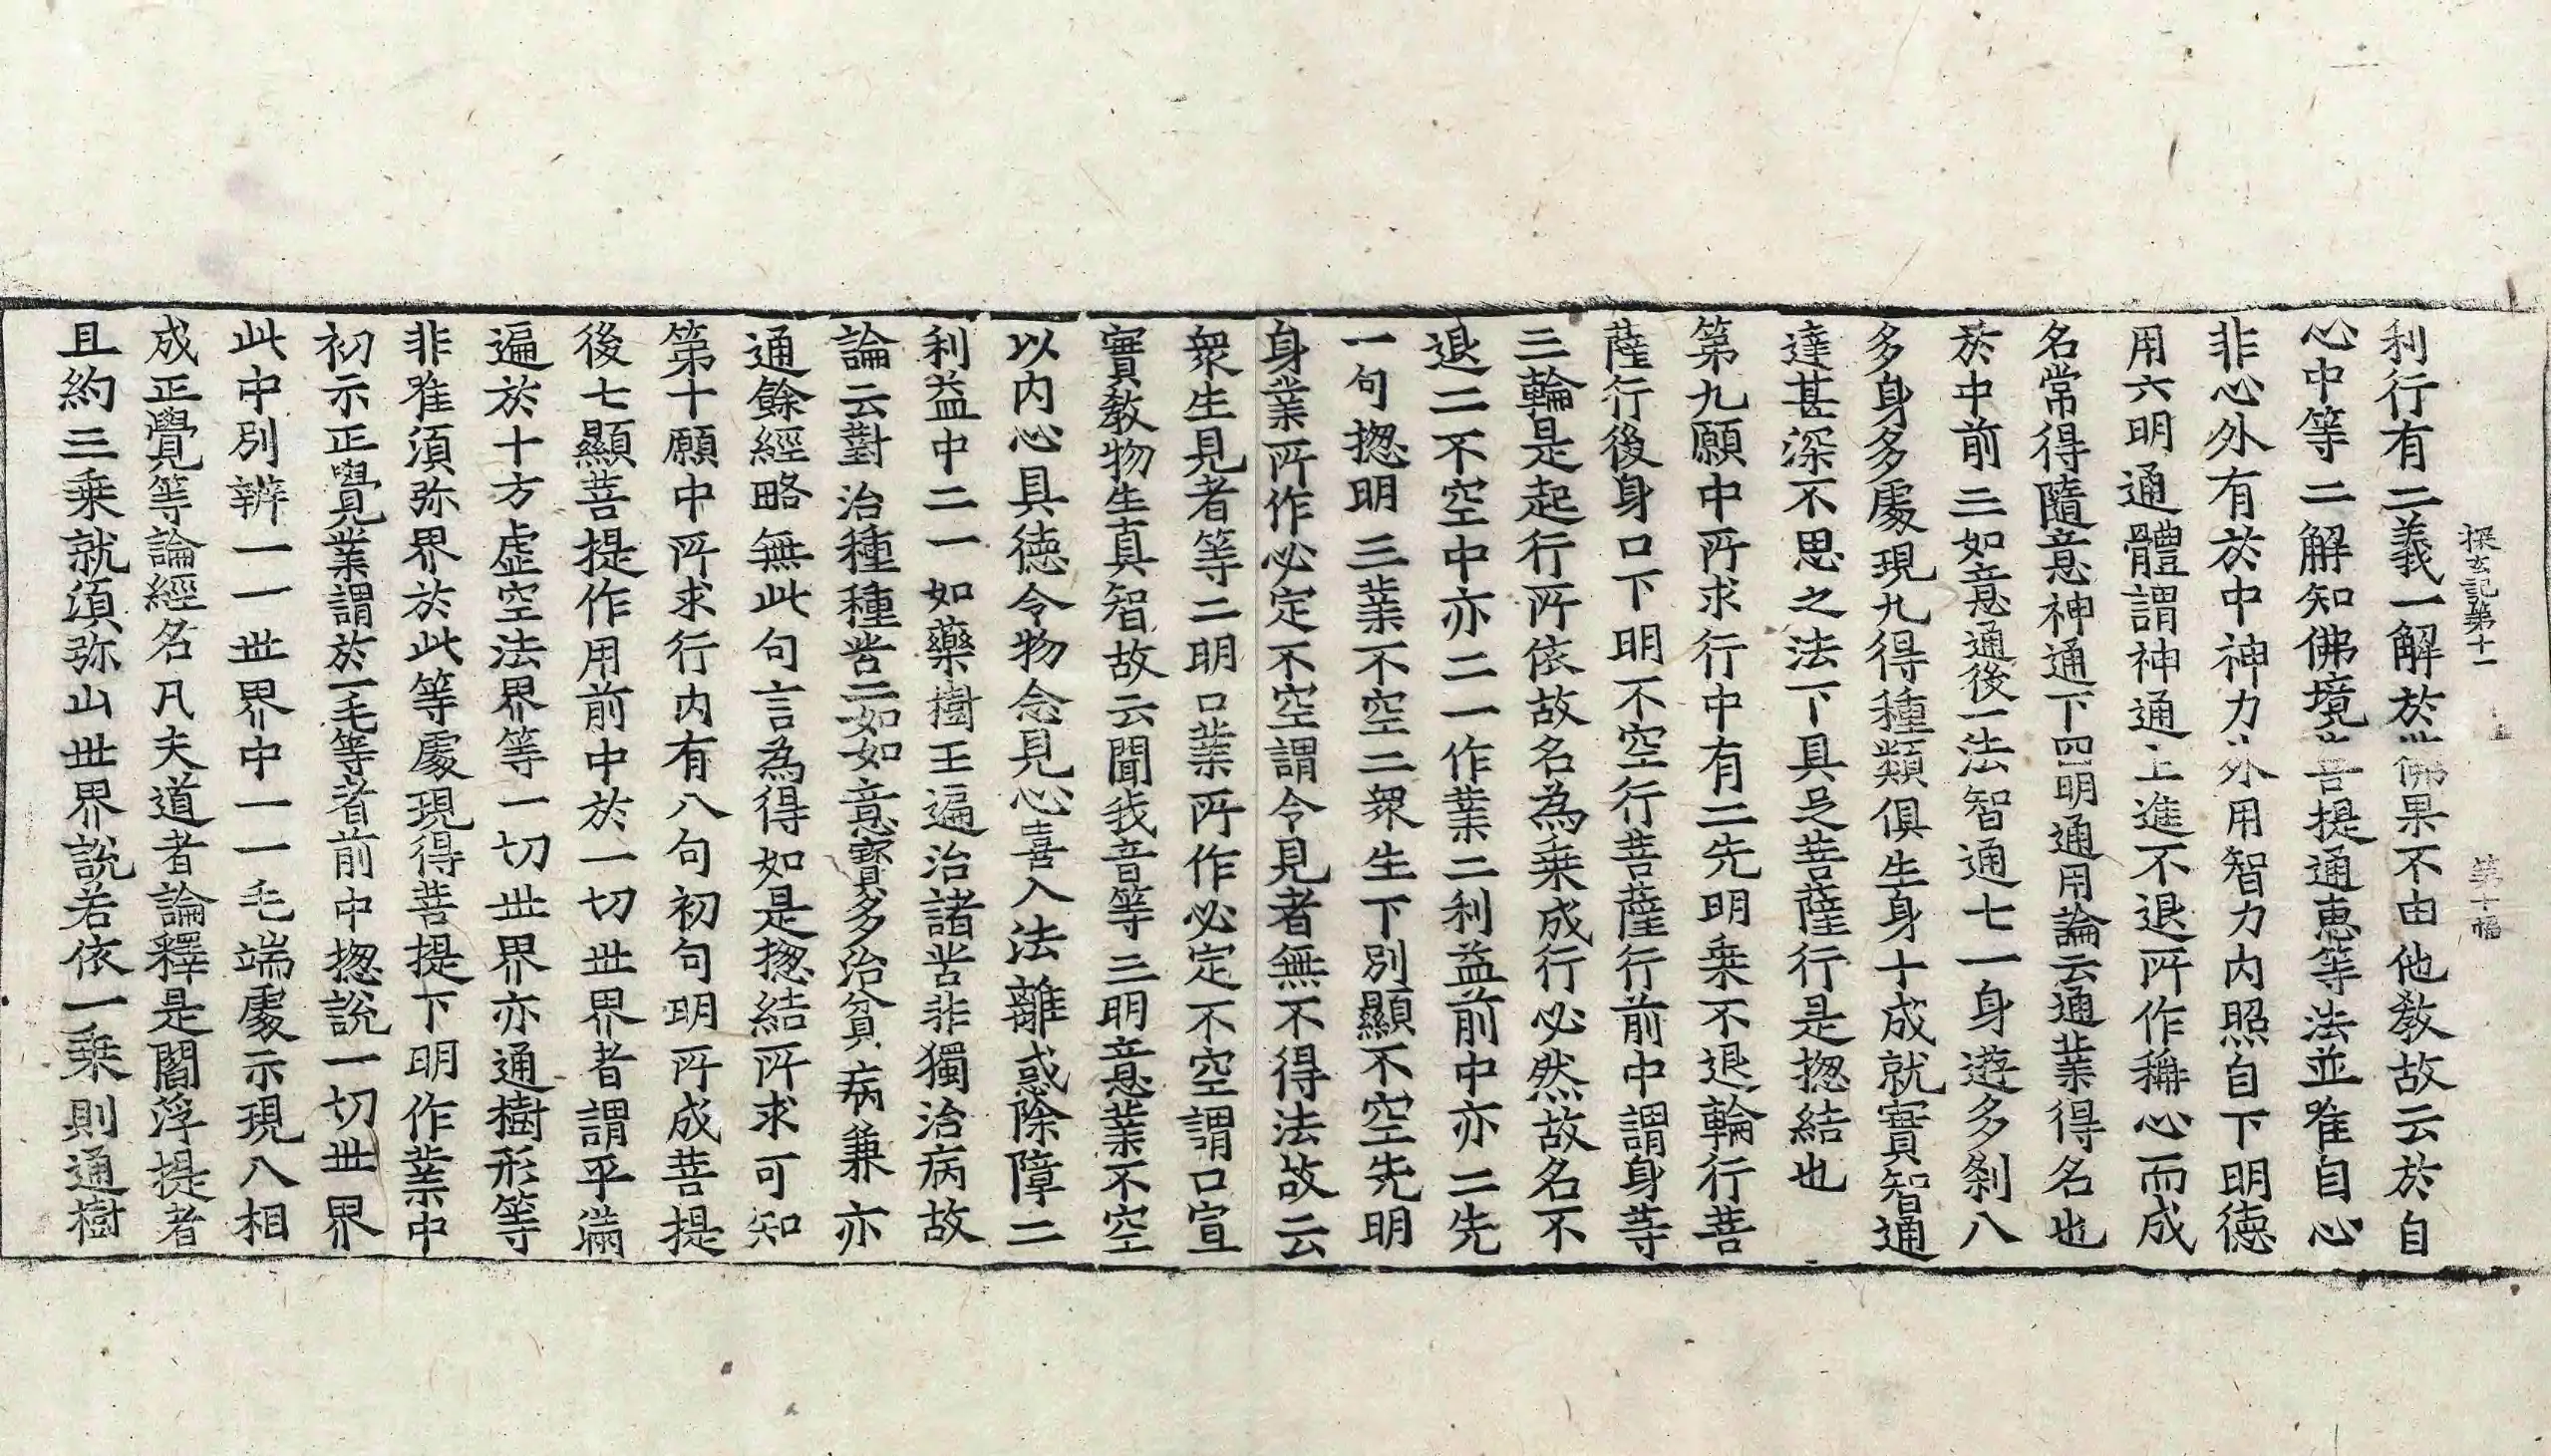 探玄記第十一 第十幅
利行有二義一解於世佛果不由他教故云於自
心中等二解知佛境菩提通惠等法並唯自心
非心外有於中神力外用智力内照自下明德
用六明通體謂神通上進不退所作稱心而成
名常得隨意神通下四明通用論云通業得名也
於中前三如意通後一法智通七一身遊多刹八
多身多處現九得種類俱生身十成就實智通
達甚深不思之法下具足菩薩行是揔結也
第九願中所求行中有二先明乗不退輪行菩
薩行後身口下明不空行菩薩行前中謂身等
三輪是起行所依故名為乗成行必然故名不
退二不空中亦二一作業二利益前中亦二先
一句揔明三業不空二衆生下別顯不空先明
身業所作必定不空謂令見者無不得法故云
衆生見者等二明口業所作必定不空謂口宣
實教物生真智故云聞我音等三明意業不空
以内心具德令物念見心喜入法離惑除障二
利益中二一如藥樹王遍治諸苦非獨治病故
論云對治種種苦二如如意寶多治貧病兼亦
通餘經略無此句言為得如是揔結所求可知
第十願中所求行内有八句初句明所成菩提
後七顯菩提作用前中於一切世界者謂平滿
遍於十方虚空法界等一切世界亦通樹形等
非唯須弥界於此等處現得菩提下明作業中
初示正覺業謂於一毛等者前中揔說一切世界
此中別辨一一世界中一一毛端處示現八相
成正覺等論經名凡夫道者論釋是閻浮提者
且約三乗就須弥山世界說若依一乗則通樹